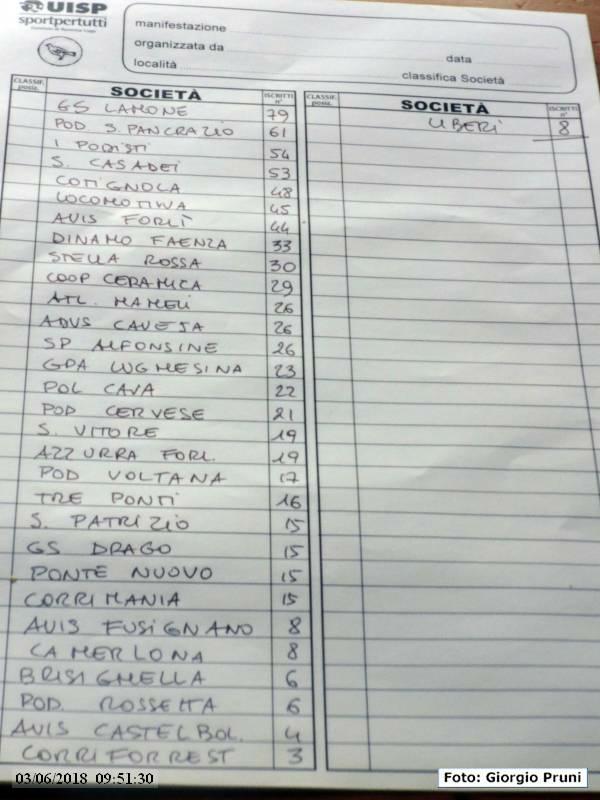 UISP
sportpertutti
manifestazione
organizzata da
data
località
classifica Società
CLASSIF. posiz. SOCIETÀ ISCRITTI n°
GS LAMONE 79
POD S. PANCRAZIO 61
I PODISTI 54
S. CASADEI 53
COTIGNOLA 48
LOCOMOTIVA 45
AVIS FORLÌ 44
DINAMO FAENZA 33
STELLA ROSSA 30
COOP CERAMICA 29
ATL. MAMELI 26
ADVS CAVEJA 26
SP ALFONSINE 26
GPA LUGHESINA 23
POL CAVA 22
POD CERVESE 21
S. VITORE 19
AZZURRA FORL. 19
POD VOLTANA 17
TRE PONTI 16
S. PATRIZIO 15
GS DRAGO 15
PONTE NUOVO 15
CORRIMANIA 15
AVIS FUSIGNANO 8
CAMERLONA 8
BRISIGHELLA 6
POD. ROSSETTA 6
AVIS CASTELBOL. 4
CORRIFORREST 3
CLASSIF. posiz. SOCIETÀ ISCRITTI n°
UBERI 8
03/06/2018 09:51:30
Foto: Giorgio Pruni